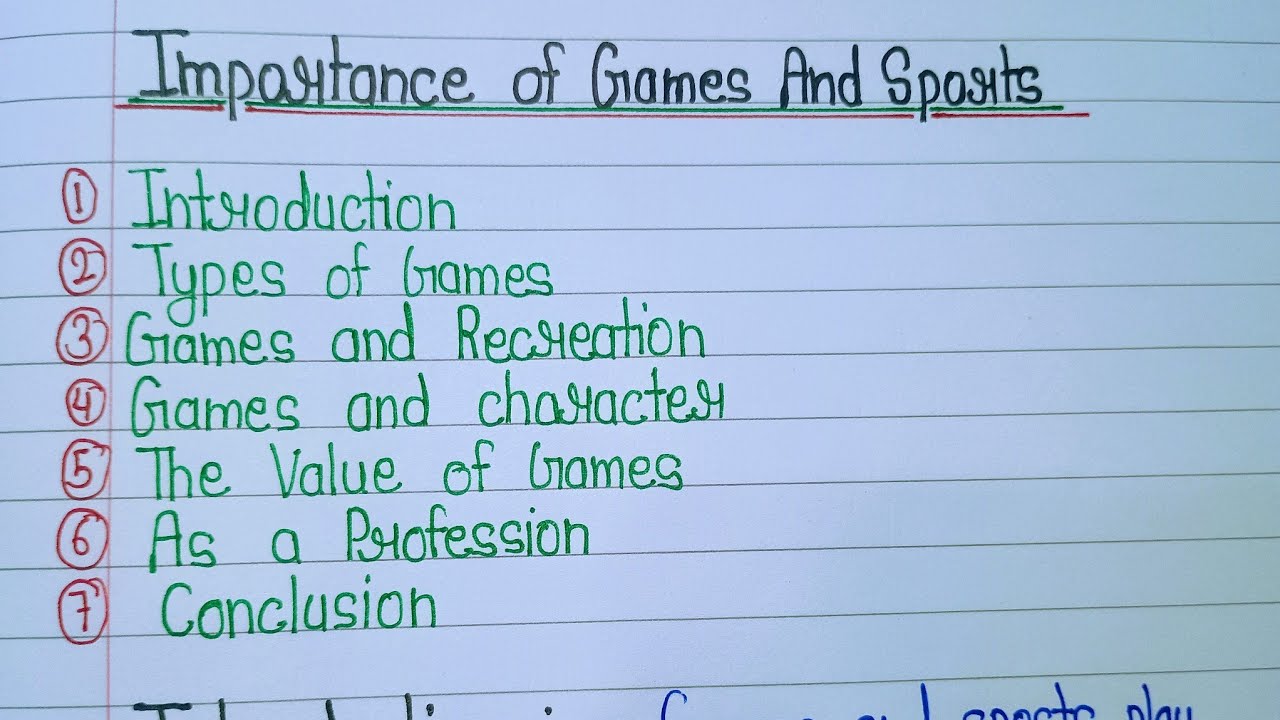 Importance of Games And Sports
① Introduction
② Types of Games
③ Games and Recreation
④ Games and character
⑤ The Value of Games
⑥ As a Profession
⑦ Conclusion
Introduction :- Games and sports play